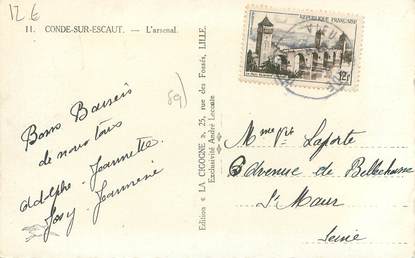 12 €
11. CONDE-SUR-ESCAUT. — L'arsenal.
59)
Bons Baisers
de nous tous
Adolphe - Jeannette
Josy - Jeannine
Edition « LA CIGOGNE », 25, rue des Fossés, LILLE
Exclusivité André Lecoste
REPUBLIQUE FRANÇAISE
12F
Mme Vve Laporte
Avenue de Bellechasse
St Maur
Seine